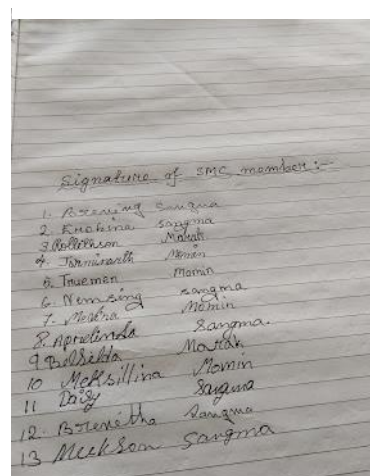 Signature of SMC member :-
1. Brening Sangma
2. Krobina Sangma
3. Rollickson Marak
4. Momin
5. Trueman Momin
6. Nemsing Sangma
7. Momin
8. Aprielinda Sangma.
9. Bolsilda Marak
10 Meksillina Momin
11 Daisy Sangma
12. Brenitha Sangma
13 Meekson Sangma